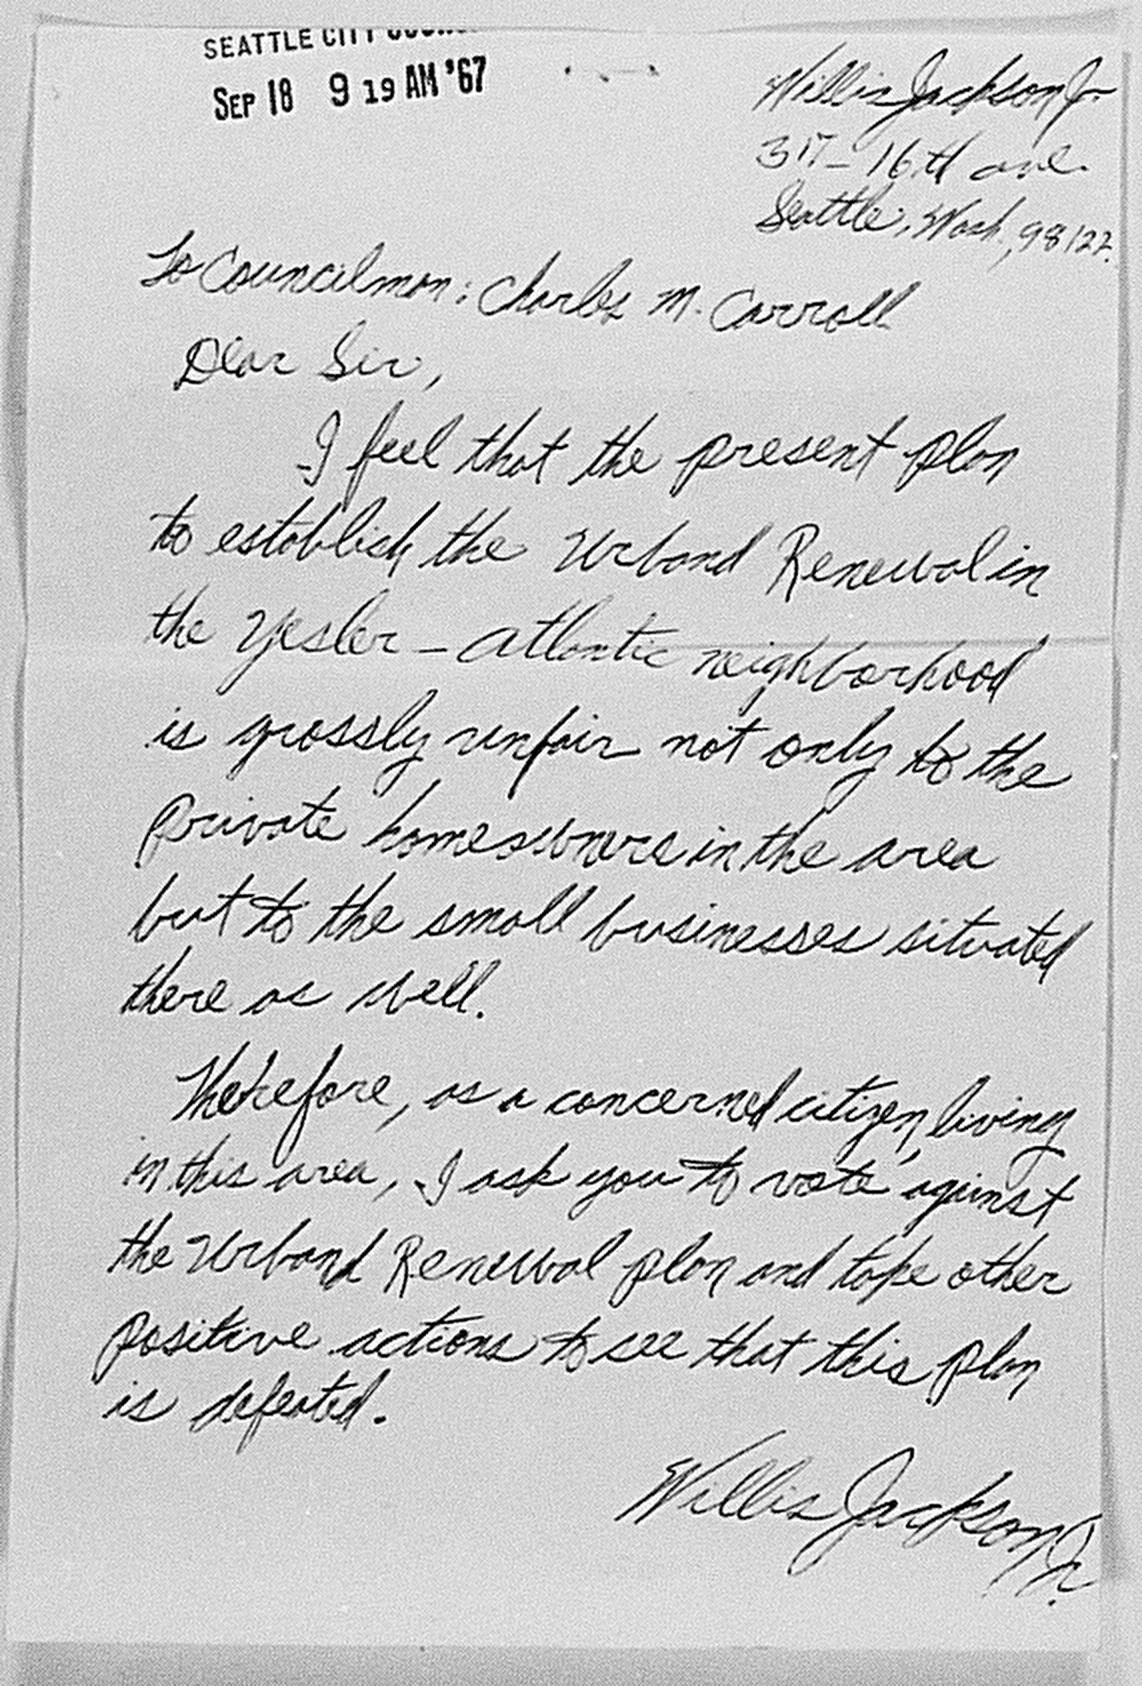 SEATTLE CITY
SEP 18 9 19 AM '67
Willis Jackson Jr.
317-16th ave.
Seattle, Wash, 98122.
To Councilman: Charles M. Carroll
Dear Sir,
I feel that the present plan
to establish the Urband Renewal in
the Yesler-atlantic neighborhood
is grossly unfair not only to the
private homeowners in the area
but to the small businesses situated
there as well.
Therefore, as a concerned citizen, living
in this area, I ask you to vote against
the Urband Renewal plan and take other
positive actions to see that this plan
is defeated.
Willis Jackson Jr.